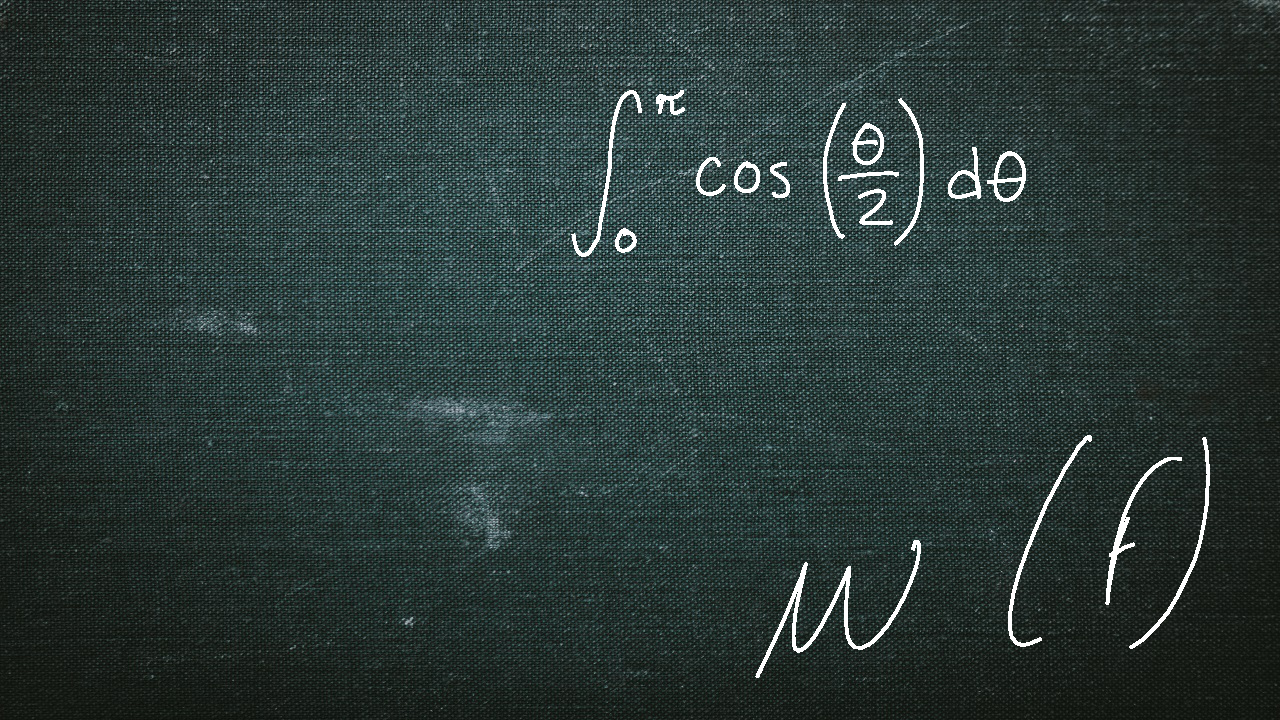 ∫₀^π cos(θ/2) dθ
μ (f)